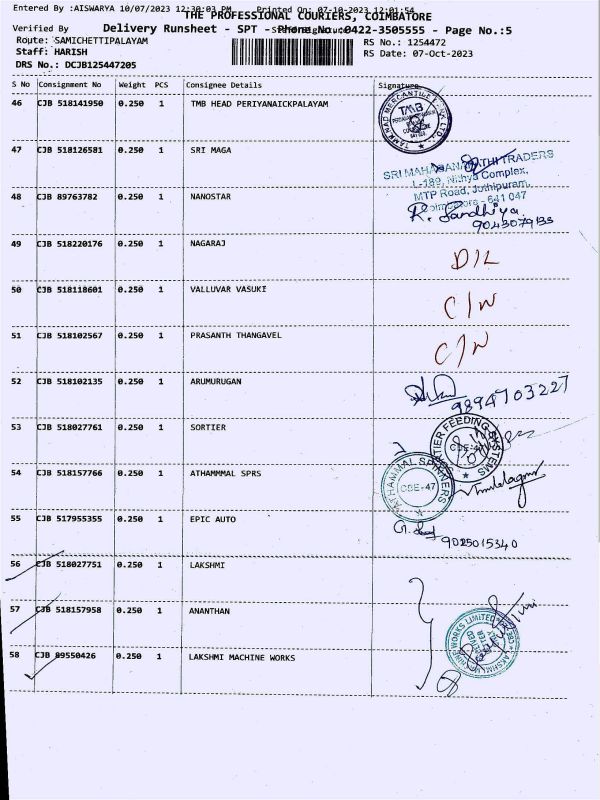 Entered By :AISWARYA 10/07/2023 12:30:03 PM Printed On: 07-10-2023 12:01:54
THE PROFESSIONAL COURIERS, COIMBATORE
Verified By Delivery Runsheet - SPT - Phone No.:0422-3505555 - Page No.:5
Route: SAMICHETTIPALAYAM RS No.: 1254472
Staff: HARISH RS Date: 07-Oct-2023
DRS No.: DCJB125447205
S No Consignment No Weight PCS Consignee Details Signature
46 CJB 518141950 0.250 1 TMB HEAD PERIYANAICKPALAYAM
TMB
47 CJB 518126581 0.250 1 SRI MAGA
L-189, Nithya Complex,
MTP Road, Jothipuram,
Coimbatore - 641 047
48 CJB 89763782 0.250 1 NANOSTAR
R. Sandhiya
9043079133
49 CJB 518220176 0.250 1 NAGARAJ
D/L
50 CJB 518118601 0.250 1 VALLUVAR VASUKI
C/N
51 CJB 518102567 0.250 1 PRASANTH THANGAVEL
C/N
52 CJB 518102135 0.250 1 ARUMURUGAN
9894703227
53 CJB 518027761 0.250 1 SORTIER
54 CJB 518157766 0.250 1 ATHAMMMAL SPRS
ATHAMMAL SPINNERS
CBE-47
55 CJB 517955355 0.250 1 EPIC AUTO
9025015340
56 CJB 518027751 0.250 1 LAKSHMI
57 CJB 518157958 0.250 1 ANANTHAN
58 CJB 89550426 0.250 1 LAKSHMI MACHINE WORKS
LAKSHMI MACHINE WORKS LIMITED